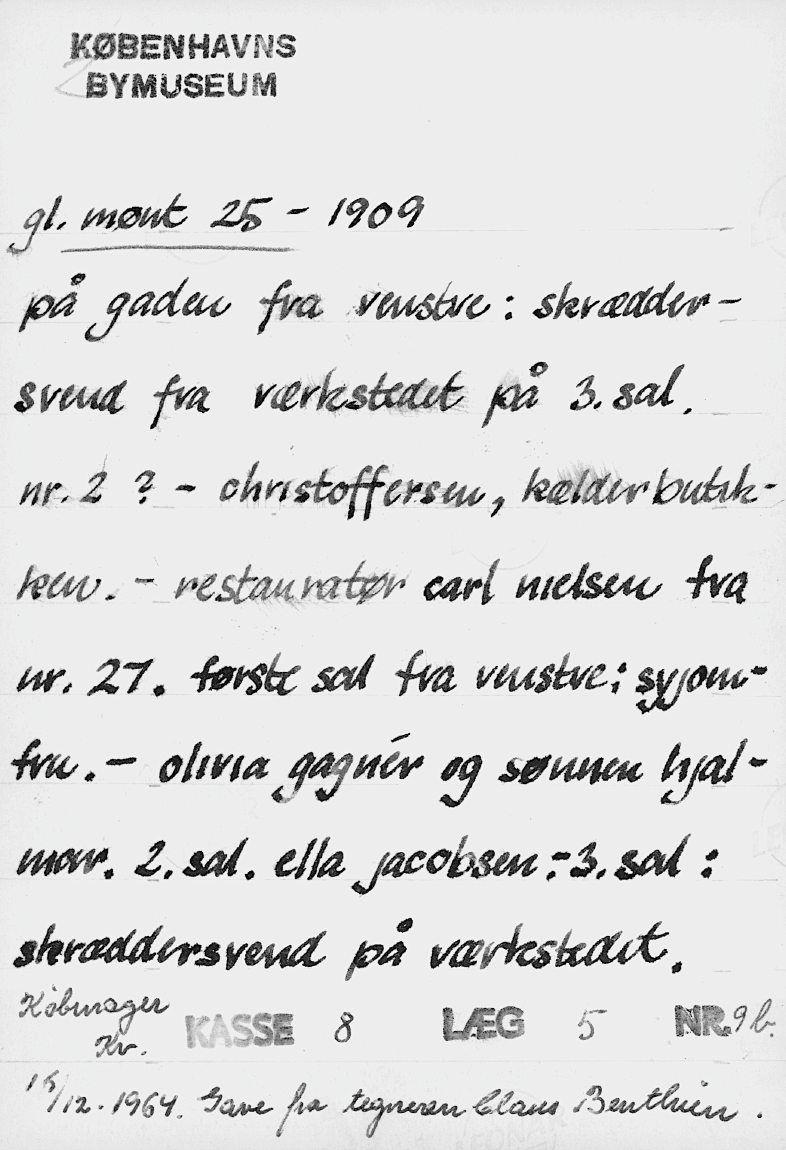 KØBENHAVNS
BYMUSEUM
gl. mønt 25 - 1909
på gaden fra venstre: skrædder-
svend fra værkstedet på 3. sal.
nr. 2 ? - christoffersen, kælderbutik-
ken. - restauratør carl nielsen fra
nr. 27. første sal fra venstre: syjom-
fru. - olivia gagnér og sønnen hjal-
mar. 2. sal. ella jacobsen. - 3. sal :
skræddersvend på værkstedet.
Købmager
Kv.
KASSE 8 LÆG 5 NR. 9 b.
15/12. 1964. Gave fra tegneren Claus Benthien.